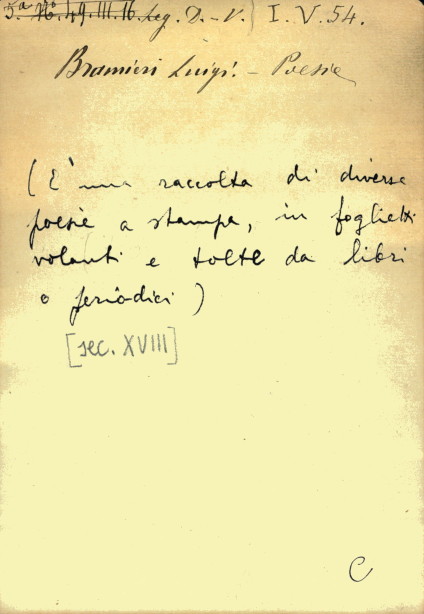 5.ª Nº 49.III.16. leg. D.-V.) I.V.54.
Bramieri Luigi. - Poesie
(E' una raccolta di diverse
poesie a stampa, in foglietti
volanti e tolte da libri
o periodici)
[sec. XVIII]
C